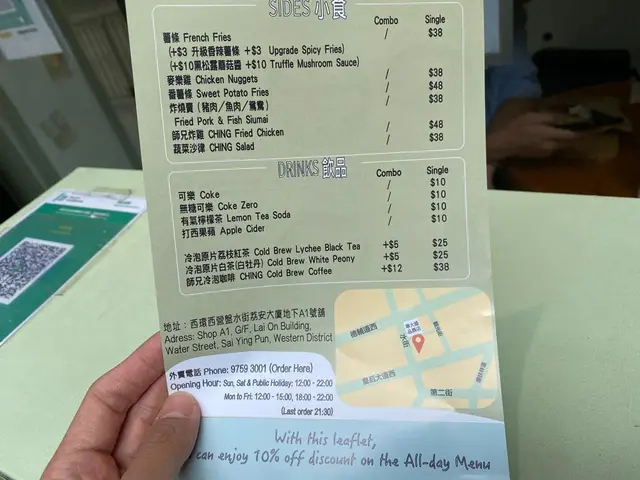 SIDES 小食
Combo Single
薯條 French Fries / $38
(+$3 升級香辣薯條 +$3 Upgrade Spicy Fries)
(+$10黑松露蘑菇醬 +$10 Truffle Mushroom Sauce)
麥樂雞 Chicken Nuggets / $38
番薯條 Sweet Potato Fries / $48
炸燒賣 (豬肉／魚肉／鴛鴦) / $38
Fried Pork & Fish Siumai
師兄炸雞 CHING Fried Chicken / $48
蔬菜沙律 CHING Salad / $38
DRINKS 飲品
Combo Single
可樂 Coke / $10
無糖可樂 Coke Zero / $10
有氣檸檬茶 Lemon Tea Soda / $10
打西果蘋 Apple Cider / $10
冷泡原片荔枝紅茶 Cold Brew Lychee Black Tea +$5 $25
冷泡原片白茶(白牡丹) Cold Brew White Peony +$5 $25
師兄冷泡咖啡 CHING Cold Brew Coffee +$12 $38
地址：西環西營盤水街荔安大廈地下A1號舖
Adress: Shop A1, G/F, Lai On Building,
Water Street, Sai Ying Pun, Western District
德輔道西
水街
皇后大道西
第二街
外賣電話 Phone: 9759 3001 (Order Here)
Opening Hour: Sun, Sat & Public Holiday: 12:00 - 22:00
Mon to Fri: 12:00 - 15:00, 18:00 - 22:00
(Last order 21:30)
With this leaflet,
can enjoy 10% off discount on the All-day Menu